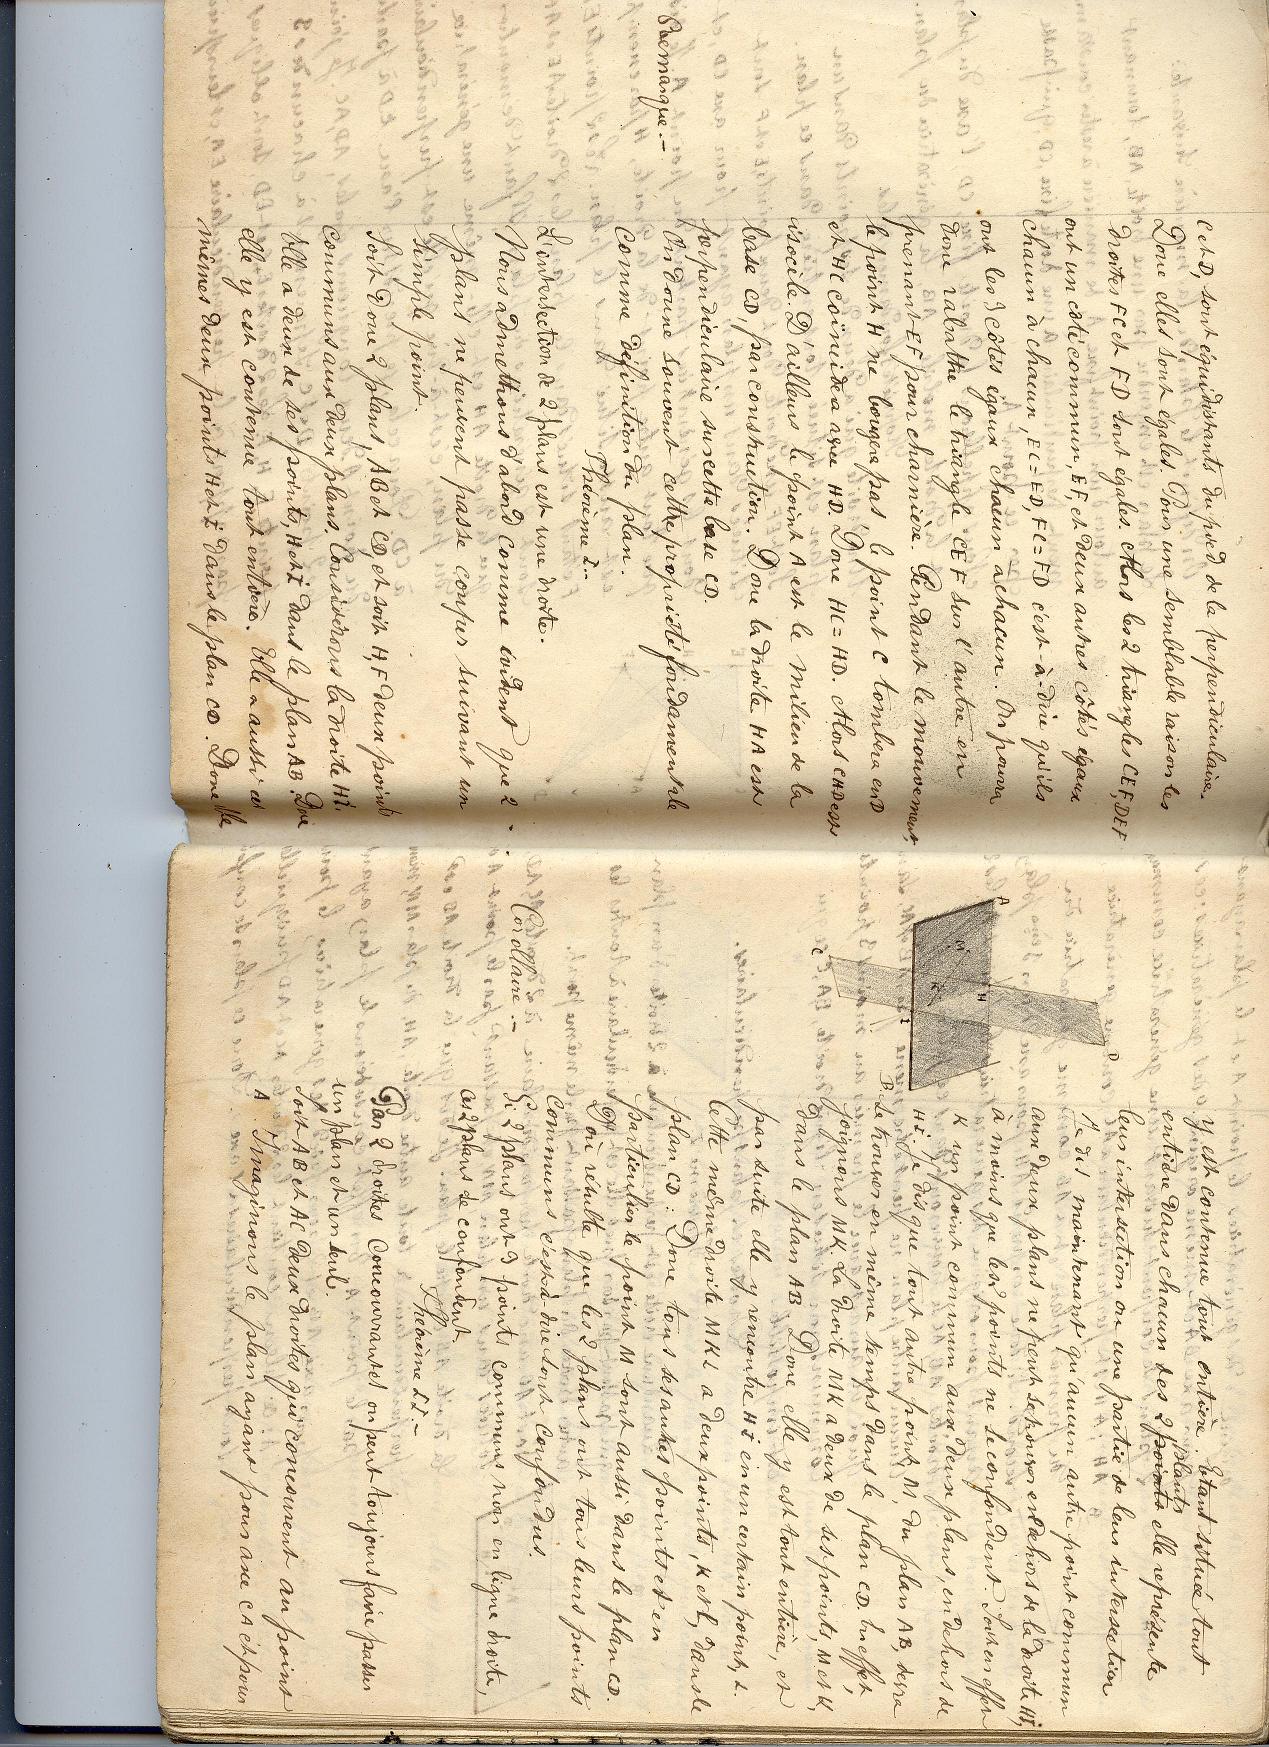 C et D, sont équidistants du pied de la perpendiculaire.
Donc elles sont égales. Pour une semblable raison les
droites FC et FD sont égales. Alors les 2 triangles CEF, DEF
ont un côté commun, EF, et deux autres côtés égaux
chacun à chacun, EC = ED, FC = FD c'est-à-dire qu'ils
ont les 3 côtés égaux chacun à chacun. On pourra
donc rabattre le triangle CEF sur l'autre en
prenant EF pour charnière. Pendant le mouvement,
le point H ne bougera pas le point C tombera en D
et HC coïncidera avec HD. Donc HC = HD. Alors CHD est
isocèle. D'ailleurs le point A est le milieu de la
base CD, par construction. Donc la droite HA est
perpendiculaire sur cette base CD.
Remarque.-
On donne souvent cette propriété fondamentale
comme définition du plan.
Théorème I.-
L'intersection de 2 plans est une droite.
Nous admettrons d'abord comme évident que 2
plans ne peuvent passe couper suivant un
simple point.
Soit donc 2 plans, AB et CD, et soit H, F deux points
communs aux deux plans. Considérons la droite HI.
Elle a deux de ses points, H et I dans le plan AB. Donc
elle y est contenue tout entière. Elle a aussi ces
mêmes deux points H et I dans le plan CD. Donc elle
y est contenue tout entière. Etant située tout
entière dans chacun des 2 points plants elle représente
leur intersection ou une partie de leur intersection
Je dis maintenant qu'aucun autre point commun
aux deux plans ne peut se trouver en dehors de la droite HI,
à moins que les points ne se confondent. Soit en effet
K un point commun aux deux plans en dehors de
HI. Je dis que tout autre point, M, du plan AB, devra
se trouver en même temps dans le plan CD. En effet
joignons MK. La droite MK a deux de ses points, M et K,
dans le plan AB. Donc elle y est tout entière, et
par suite elle y rencontre HI en un certain point, L.
Cette même droite MKL a deux points, K et L, dans le
plan CD : Donc tous ses autres points et en
particulier le point M sont aussi dans le plan CD.
D'où résulte que les 2 plans ont tous leurs points
communs c'est-à-dire sont confondus.
Corollaire.-
Si 2 plans ont 3 points communs non en ligne droite,
ces 2 plans se confondent
Théorème II.-
Par 2 droites concourantes on peut toujours faire passer
un plan et un seul.
Soit AB et AC deux droites qui concourent au point
A. Imaginons le plan ayant pour axe CA et pour
A
M
K
H
C
D
I
B